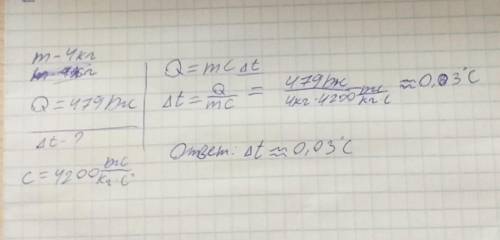 m - 4кг
Q = 479 Дж
Δt - ?
c = 4200 Дж/кг·С°
Q = mcΔt
Δt = Q/mc = 479 Дж/4кг·4200 Дж/кг·С ≈ 0,03°C
Ответ: Δt ≈ 0,03°C